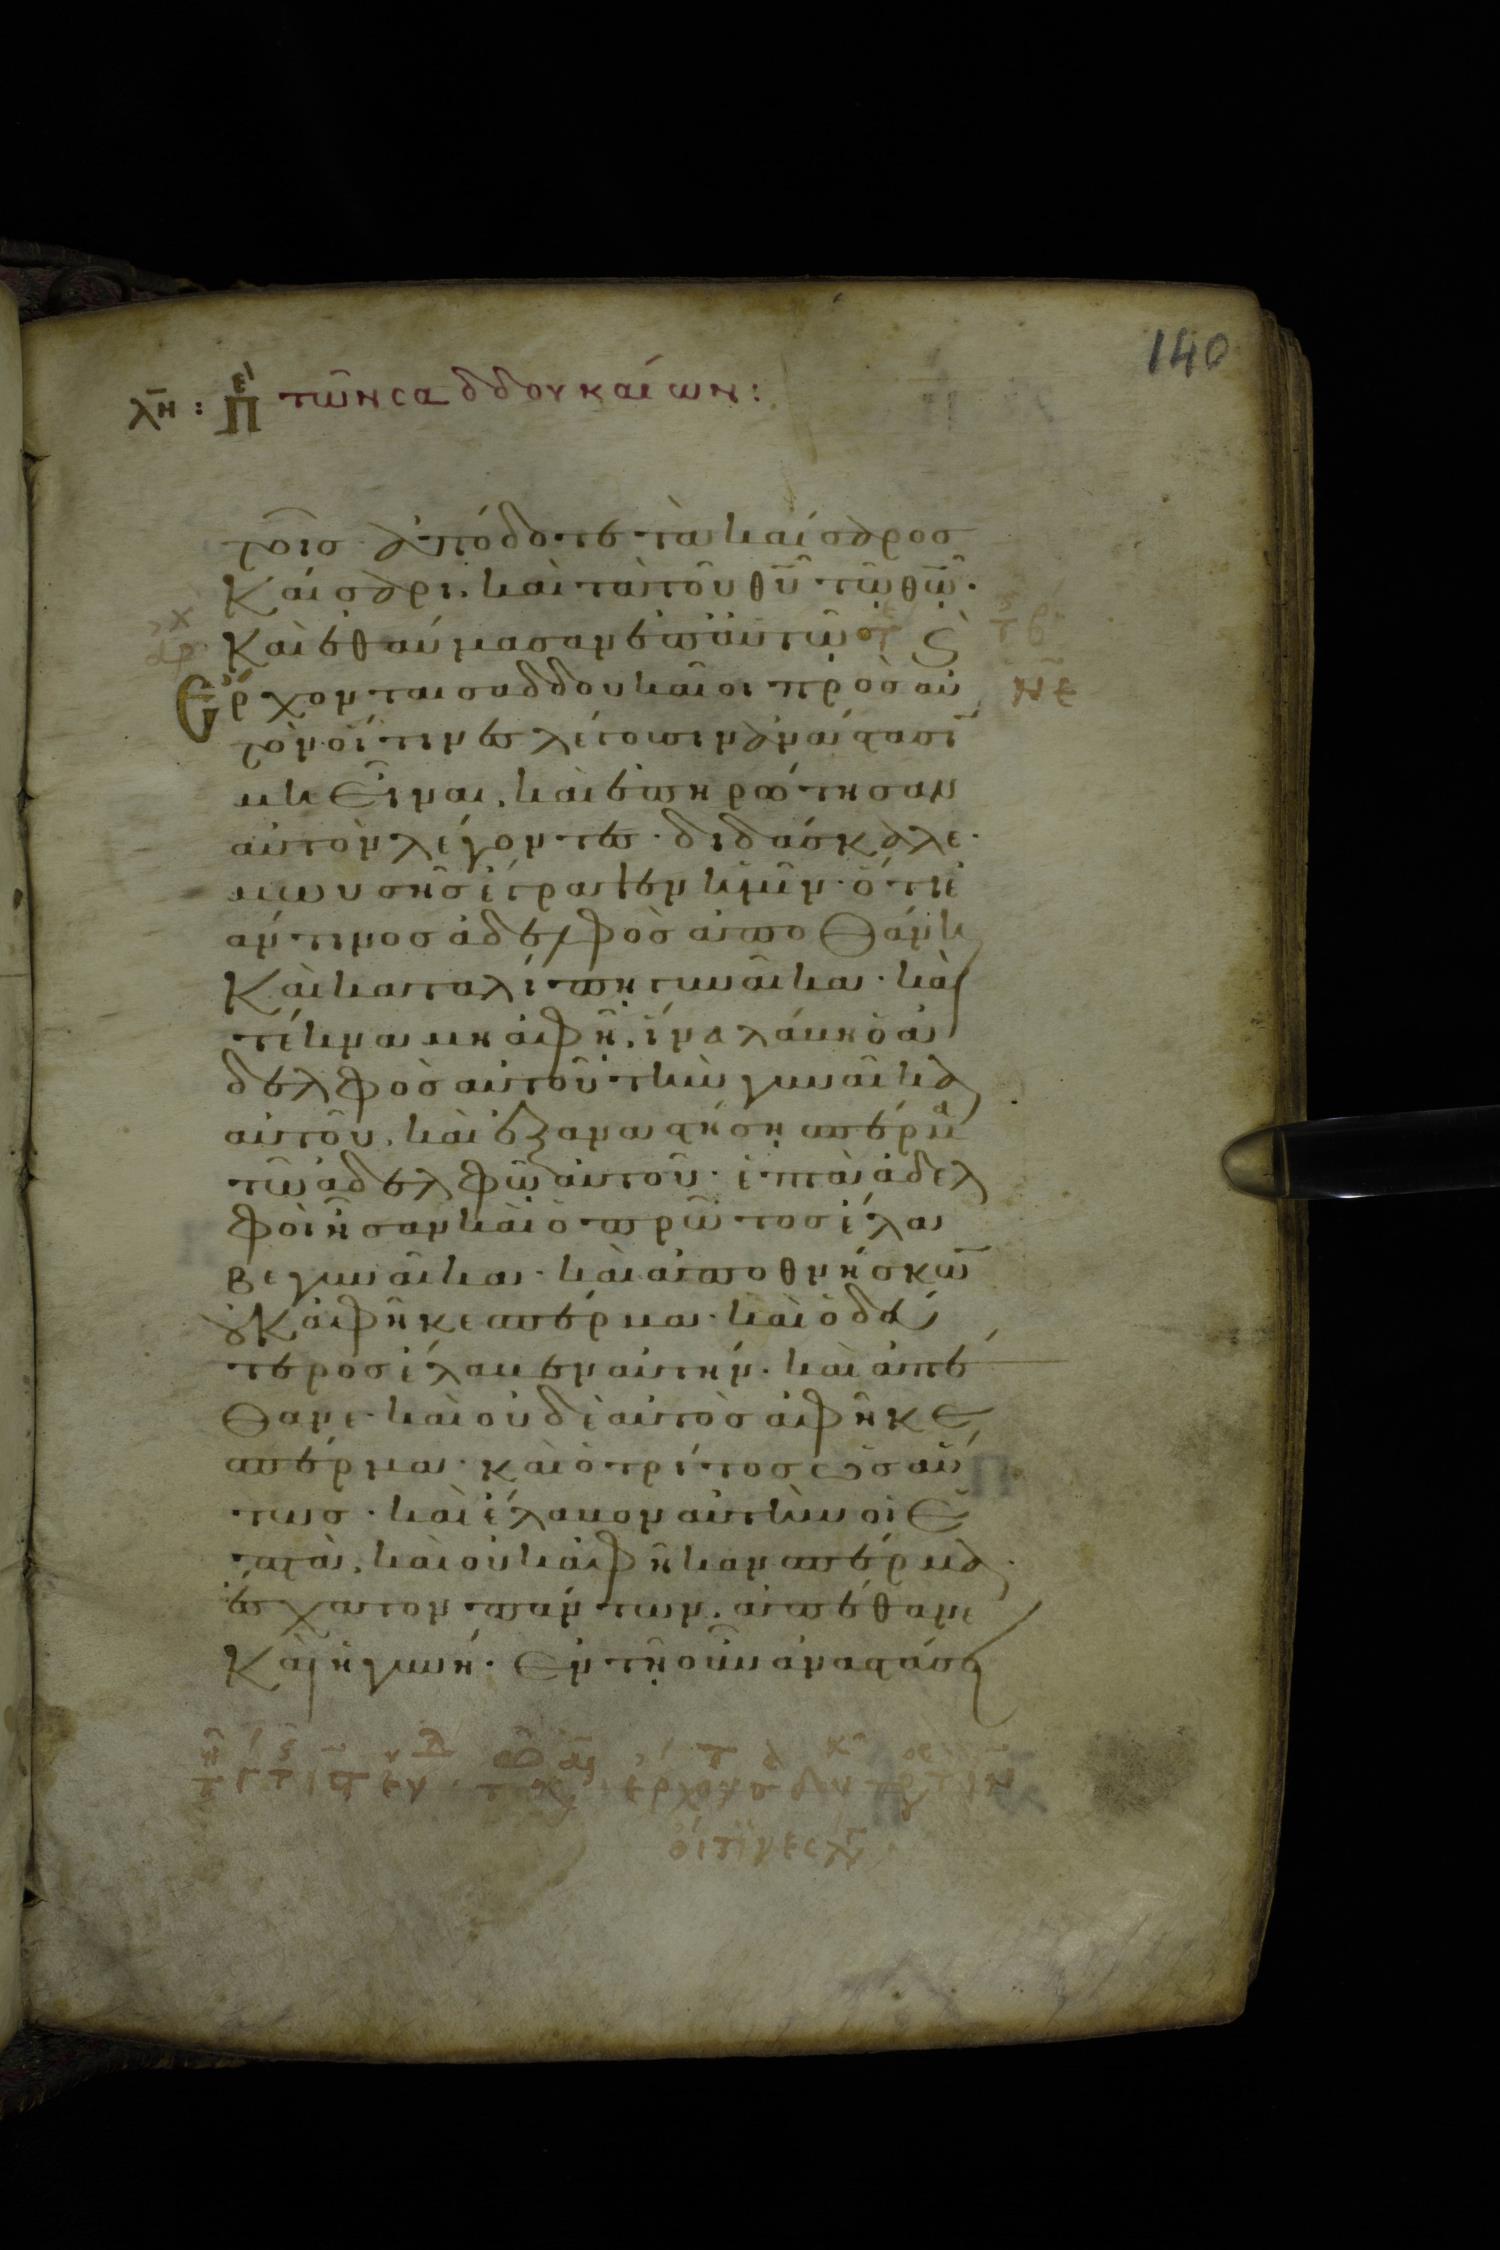 140
λη : Πει τῶν σαδδουκαίων :
τοῖσ ἀπόδοτε τὰ καίσαροσ
Καίσαρι. καὶ τὰ τοῦ θῦ τῶ θῶ.
Καὶ ἐθαύμασαν ἐπ αὐτῶ
Ἔρχονται σαδδουκαῖοι πρὸσ αὐ
τὸν οἵτινεσ λέγουσιν ἀνάστασῑ
μὴ εἶναι. καὶ ἐπηρώτησαν
αὐτὸν λέγοντεσ. διδάσκαλε.
μωυσῆσ ἔγραψεν ἡμῖν. ὅτι ἐ
άν τινοσ ἀδελφὸσ ἀποθάνη
Καὶ καταλίπη γυναῖκα. καὶ
τέκνα μὴ ἀφῆ. ἵνα λάβη ὁ ἀ
δελφὸσ αὐτοῦ τὴν γυναῖκα
αὐτοῦ. καὶ ἐξαναστήση σπέρμα
τῶ ἀδελφῶ αὐτοῦ. ἑπτὰ ἀδελ
φοὶ ἦσαν καὶ ὁ πρῶτοσ ἔλα
βε γυναῖκα. καὶ ἀποθνήσκω̄
οὐκ ἀφῆκε σπέρμα. καὶ ὁ δεύ
τεροσ ἔλαβεν αὐτήν. καὶ ἀπέ
θανε. καὶ οὐδὲ αὐτὸσ ἀφῆκε
σπέρμα. καὶ ὁ τρίτοσ ὡσαύ
τωσ. καὶ ἔλαβον αὐτὴν οἱ ἑ
πτὰ. καὶ οὐκ ἀφῆκαν σπέρμα.
ἔσχατον πάντων. ἀπέθανε
Καὶ ἡ γυνή. Ἐν τῆ οὖν ἀναστάσει
οἵτινες